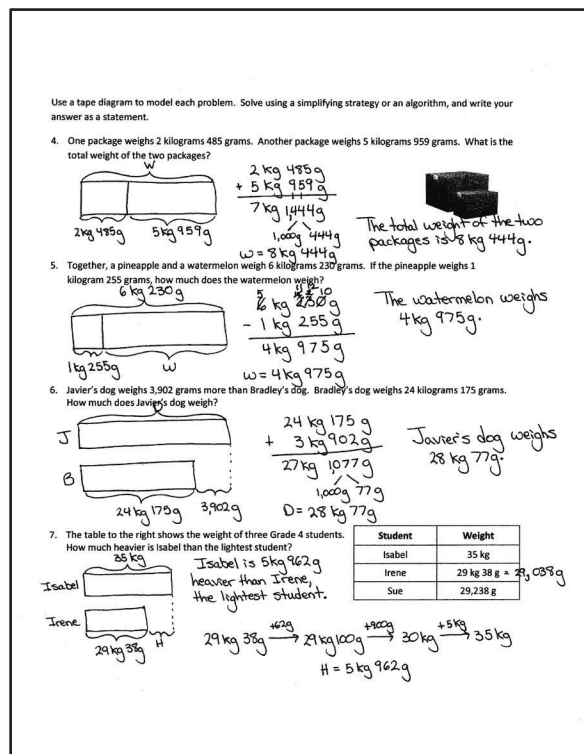 Use a tape diagram to model each problem. Solve using a simplifying strategy or an algorithm, and write your
answer as a statement.
4. One package weighs 2 kilograms 485 grams. Another package weighs 5 kilograms 959 grams. What is the
total weight of the two packages?
W
2kg 485g 5kg 959g
2 kg 485g
+ 5 kg 959g
7 kg 1,444g
1,000g 444g
W = 8 kg 444g
The total weight of the two
packages is 8 kg 444g.
5. Together, a pineapple and a watermelon weigh 6 kilograms 230 grams. If the pineapple weighs 1
kilogram 255 grams, how much does the watermelon weigh?
6 kg 230 g
1kg 255g W
5 11 12 10
6 kg 230g
- 1 kg 255g
4kg 975g
W = 4 kg 975g
The watermelon weighs
4kg 975g.
6. Javier's dog weighs 3,902 grams more than Bradley's dog. Bradley's dog weighs 24 kilograms 175 grams.
How much does Javier's dog weigh?
D
J
B
24 kg 175g 3,902g
24 kg 175 g
+ 3 kg 902g
27kg 1,077g
1,000g 77g
D = 28 kg 77g
Javier's dog weighs
28 kg 77g.
7. The table to the right shows the weight of three Grade 4 students.
How much heavier is Isabel than the lightest student?
35 kg
Isabel
Irene
29kg 38g H
Isabel is 5kg 962g
heavier than Irene,
the lightest student.
Student Weight
Isabel 35 kg
Irene 29 kg 38 g = 29,038g
Sue 29,238 g
+62g +900g +5kg
29 kg 38g → 29kg 100g → 30 kg → 35 kg
H = 5 kg 962g